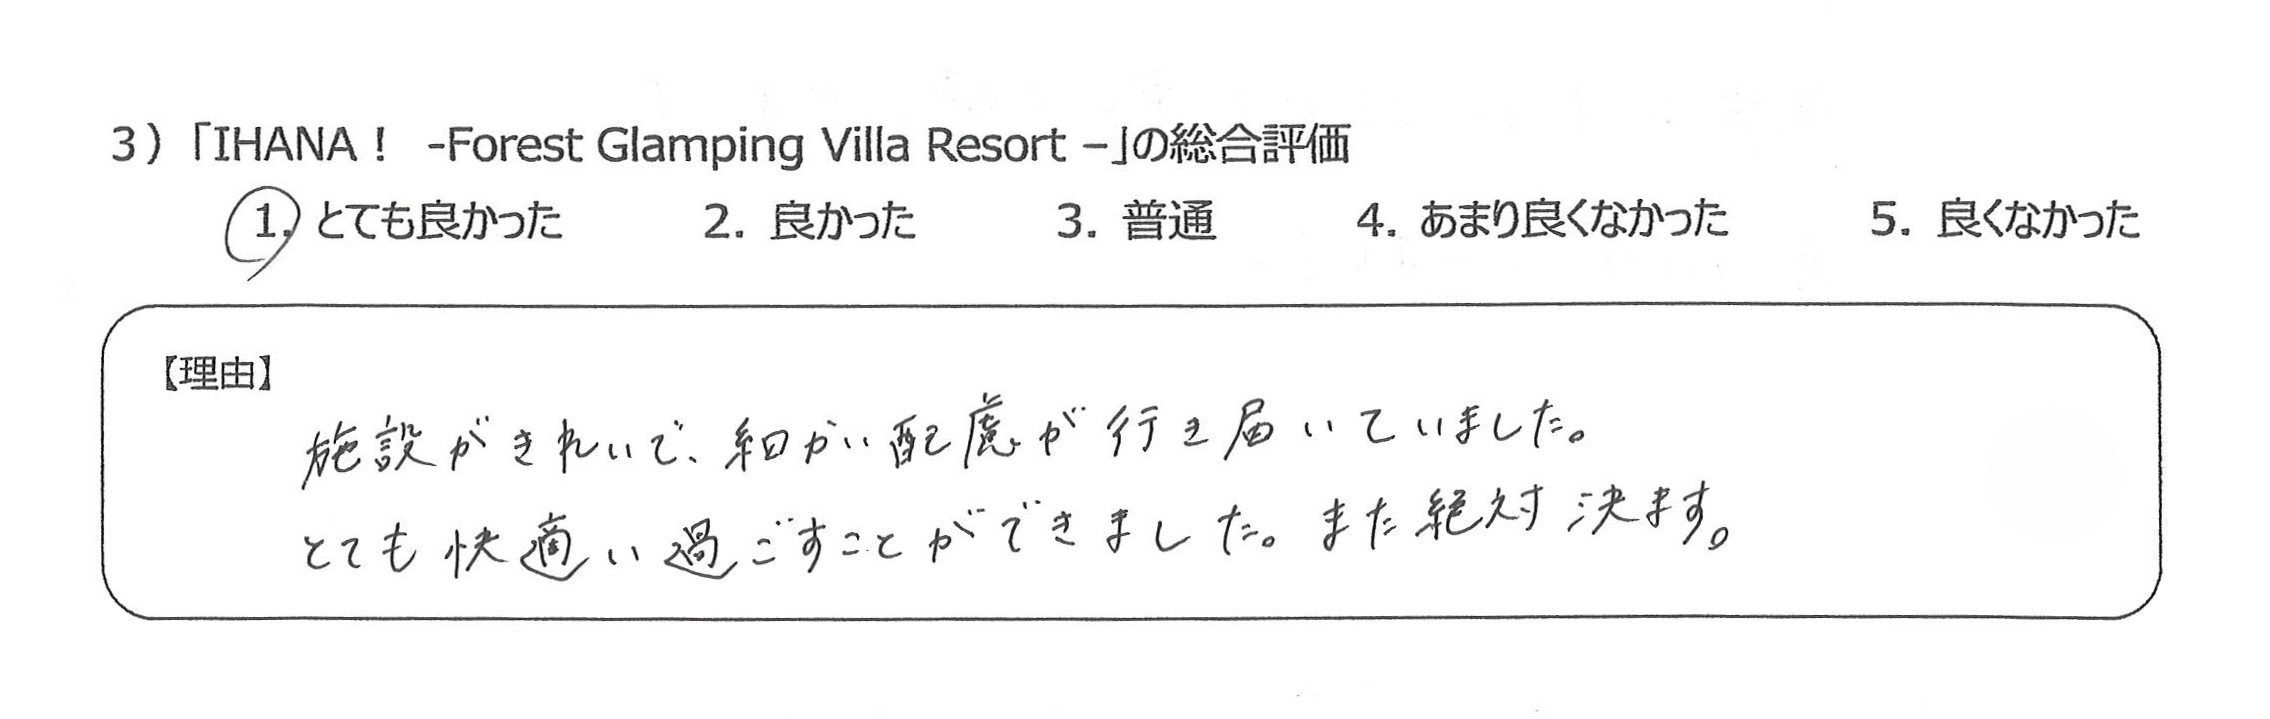 3）「IHANA！ -Forest Glamping Villa Resort –」の総合評価
1. とても良かった 2. 良かった 3. 普通 4. あまり良くなかった 5. 良くなかった
【理由】
施設がきれいで、細かい配慮が行き届いていました。
とても快適い過ごすことができました。また絶対決ます。